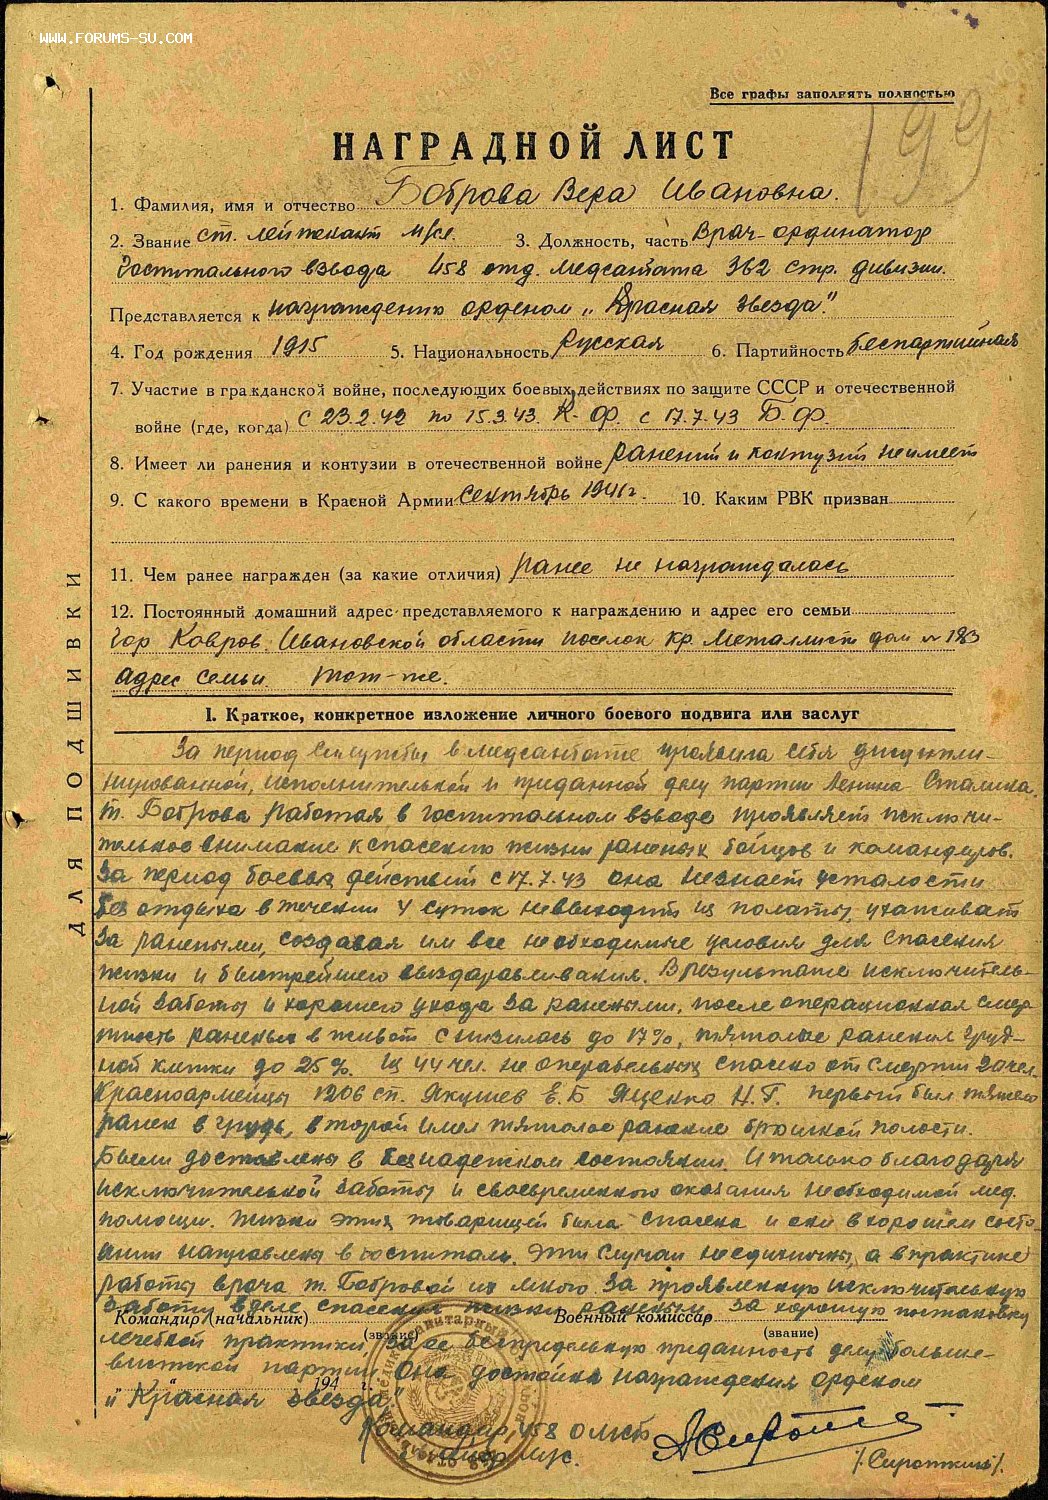 WWW.FORUMS-SU.COM
Все графы заполнять полностью
199
НАГРАДНОЙ ЛИСТ
1. Фамилия, имя и отчество Боброва Вера Ивановна.
2. Звание ст. лейтенант м/сл. 3. Должность, часть Врач-ординатор
госпитального взвода 458 отд. медсанбата 362 стр. дивизии.
Представляется к награждению орденом „Красная звезда"
4. Год рождения 1915 5. Национальность Русская 6. Партийность беспартийная
7. Участие в гражданской войне, последующих боевых действиях по защите СССР и отечественной
войне (где, когда) с 23.2.42 по 15.3.43. К-Ф. с 17.7.43 Б.Ф.
8. Имеет ли ранения и контузии в отечественной войне ранений и контузий не имеет
9. С какого времени в Красной Армии сентябрь 1941г. 10. Каким РВК призван
11. Чем ранее награжден (за какие отличия) ранее не награждалась
12. Постоянный домашний адрес представляемого к награждению и адрес его семьи
гор Ковров Ивановской области поселок кр. металлист дом № 183
адрес семьи тот-же.
I. Краткое, конкретное изложение личного боевого подвига или заслуг
За период службы в медсанбате проявила себя дисципли-
нированной, исполнительной и преданной делу партии Ленина Сталина.
т. Боброва работая в госпитальном взводе проявляет исключи-
тельное внимание к спасению жизни раненых бойцов и командиров.
За период боевых действий с 17.7.43 она не знает усталости
без отдыха в течении 4 суток не выходит из полаты, ухаживает
за ранеными, создавая им все необходимые условия для спасения
жизни и быстрейшего выздоравливания. В результате исключитель-
ной заботы и хорошего ухода за ранеными, после операционная смер
тность раненых в живот снизилась до 17%, тяжолые ранения груд-
ной клетки до 25%. Из 44 чел. не операбельных спасено от смерти
Красноармейцы 1206 сп. Якушев Е.Б Яценко Н.Г. первый был тяжело
ранен в грудь, второй имел тяжолое ранение брюшной полости.
Были доставлены в безнадежном состоянии. И только благодаря
исключительной заботы и своевременного оказания необходимой мед.
помощи. жизнь этих товарищей была спасена и они в хорошем состо-
янии направлены в госпиталь. Эти случаи не единичны, а в практике
работы врача т. Бобровой их много. За проявленную исключительную
заботу в деле спасения жизни раненым, за хорошую постановку
Командир (начальник) Военный комиссар
лечебной практики, за ее беспредельную преданность делу больше-
(звание) (звание)
вистской партии. Она достойна награждения орденом
194
„Красная звезда"
Командир 458 ОМСБ
майор м/с.
/Сироткин/.
ДЛЯ ПОДШИВКИ